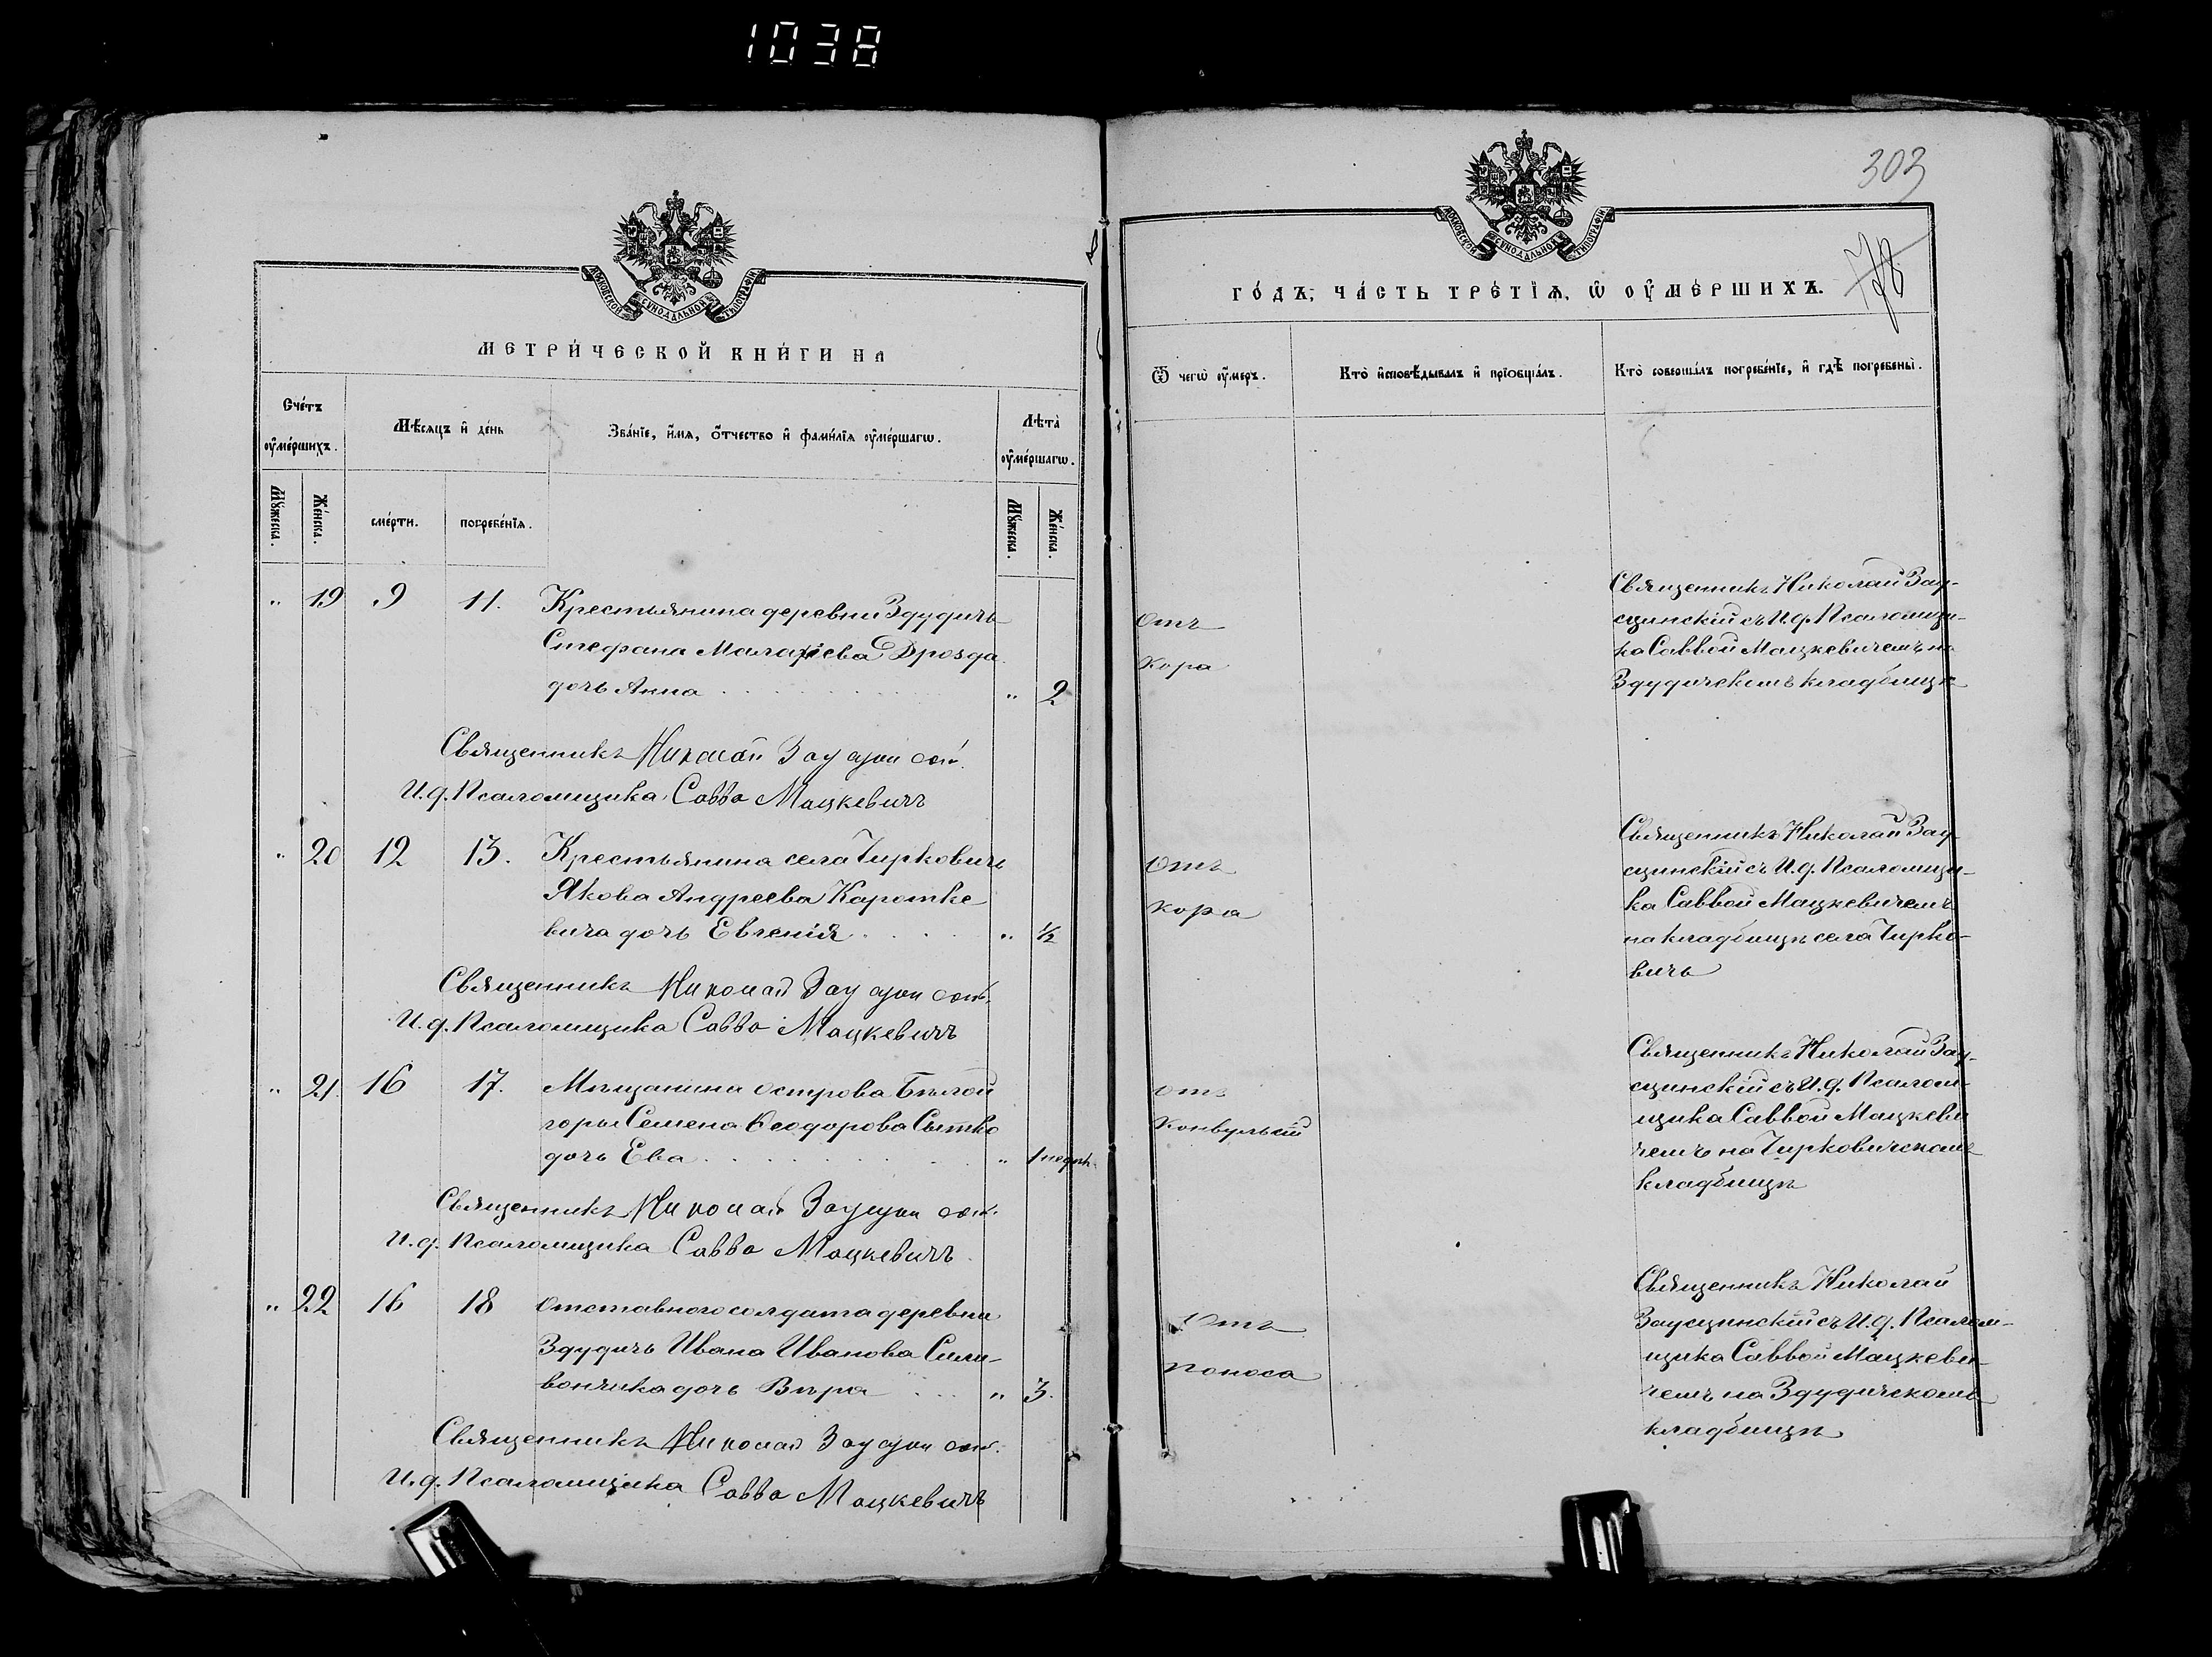 1038
МОСКОВСКОЙ СѴНОДАЛЬНОЙ ТѴПОГРАФІИ
МЕТРИ́ЧЕСКОЙ КНИ́ГИ НА
Счéтъ оу҆мéршихъ.
Мѣ́сяцъ и҆ дéнь
Звáніе, и҆́мя, ѻ҆́тчество и҆ фами́лія оу҆мéршагѡ.
Лѣ́та оу҆мéршагѡ.
Мꙋ́жеска.
Жéнска.
смéрти.
погребéнїѧ.
Мꙋ́жеска.
Жéнска.
" 19 9 11. Крестьянина деревни Здудичъ
Стефана Малахіева Дрозда
дочь Анна " 2
Священникъ Николай Заусцинскій
И.д. Псаломщика Савва Мацкевичъ
" 20 12 13. Крестьянина села Чирковичъ
Якова Андреева Каротке
вича дочь Евгенія " ½
Священникъ Николай Заусцинскій
И.д. Псаломщика Савва Мацкевичъ
" 21. 16 17. Мѣщанина острова Бѣлой
горы Семена Ѳеодорова Сытко
дочь Ева " 1 недѣл.
Священникъ Николай Заусцинскій
И.д. Псаломщика Савва Мацкевичъ
" 22 16 18 Отставного солдата деревни
Здудичъ Ивана Иванова Сили-
вончика дочь Вѣра " 3.
Священникъ Николай Заусцинскій
И.д. Псаломщика Савва Мацкевичъ
303
МОСКОВСКОЙ СѴНОДАЛЬНОЙ ТѴПОГРАФІИ
78
ГО́ДЪ, ЧА́СТЬ ТРЕ́ТЇѦ, Ѡ҆ ОУ҆МЕ́РШИХЪ.
Ѿ чегѡ̀ оу҆́меръ.
Ктò и҆сповѣ́дывалъ и҆ прїѻбщáлъ.
Ктò совершáлъ погребéнїе, и҆ гдѣ̀ погребены̀.
Отъ
кора
Священникъ Николай Зау-
сцинскій съ И.д. Псаломщи-
ка Саввой Мацкевичемъ на
Здудичскомъ кладбищѣ
Отъ
кора
Священникъ Николай Зау-
сцинскій съ И.д. Псаломщи-
ка Саввой Мацкевичемъ
на кладбищѣ села Чирко-
вичъ
отъ
конвульсій
Священникъ Николай Зау-
сцинскій съ И.д. Псалом-
щика Саввой Мацкеви
чемъ на Чирковичскомъ
кладбищѣ
Отъ
поноса
Священникъ Николай
Заусцинскій съ И.д. Псалом-
щика Саввой Мацкеви-
чемъ на Здудичскомъ
кладбищѣ